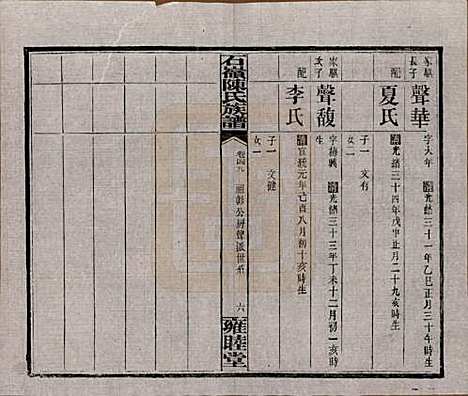 家騵長子
聲華
字大年 清光緒三十一年乙巳正月三十午時生
配
夏氏
清光緒三十四年戊申正月二十九亥時生
子一 文有
女二
家騵次子
聲馥
字梅興 清光緒三十三年丁未十二月初一亥時生
配
李氏
清宣統元年己酉八月初十亥時生
子一 文健
女一
石嶺陳氏族譜
卷四九
聲派世系
六
雍睦堂